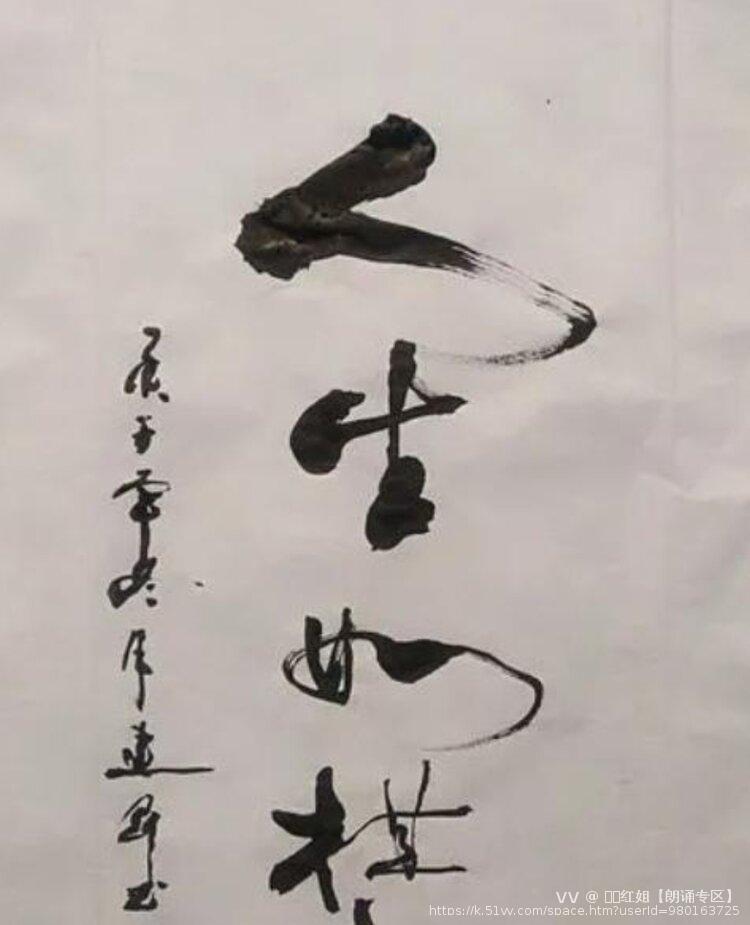 人生如棋
庚子年冬月建军书
VV @ 红姐【朗诵专区】
https://k.51vv.com/space.htm?userId=980163725